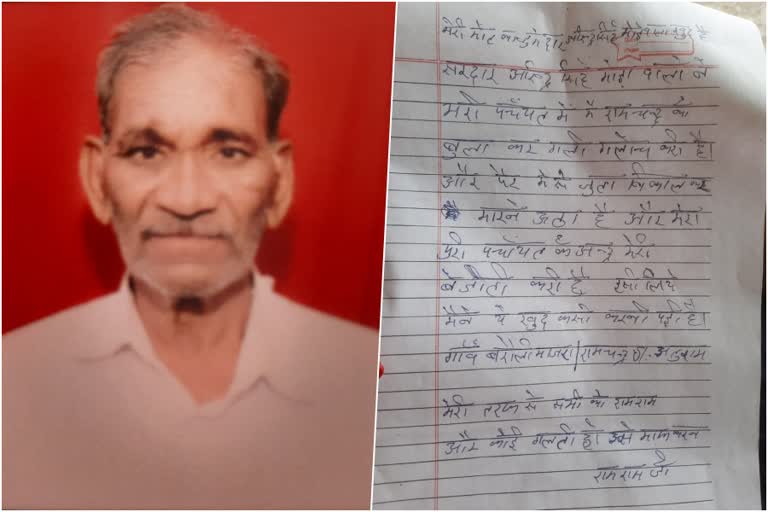 मेरी मोत का जुमेदार
सरदार सिंह माड़ी वालो ने
भरी पंचायत में मैं रामचन्द्र को
बुला कर गाली गलोच करी है।
और पैर में से जुता निकाल कर
मारने उठा है और मेरा
पुरी पंचायत के अन्द्र मेरी
बेजोती करी है इसी लिये
मैने ये खुद कसी करनी पड़ी है।
गाँव बैरोली माजरा रामचन्द्र
मेरी तरफ से सभी को रामराम
और कोई गलती हो उसे माफ करना
राम राम जी